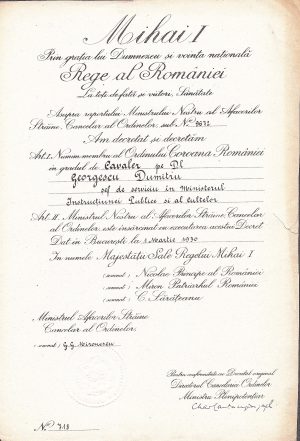 Mihai I
Prin grația lui Dumnezeu și voința națională
Rege al României
La toți de față și viitori, Sănătate
Asupra raportului Ministrului Nostru al Afacerilor
Străine, Cancelar al Ordinelor, sub No. 9672
Am decretat și decretăm
Art. I. Numim membru al Ordinului Coroana României
în gradul de Cavaler pe Dl
Georgescu Dumitru
șef de serviciu în Ministerul
Instrucțiunei Publice și al Cultelor
Art. II. Ministrul Nostru al Afacerilor Străine, Cancelar
al Ordinelor, este însărcinat cu executarea acestui Decret
Dat în București la 1 Martie 1930
În numele Majestății Sale Regelui Mihai I
(semnat) Nicolae Principe al României
(semnat) Miron Patriarhul României
(semnat) C. Sărățeanu
Ministrul Afacerilor Străine
Cancelar al Ordinelor,
(semnat) G.G. Mironescu
Pentru conformitate cu Decretul original
Directorul Cancelariei Ordinelor
Ministru Plenipotențiar
No. 718